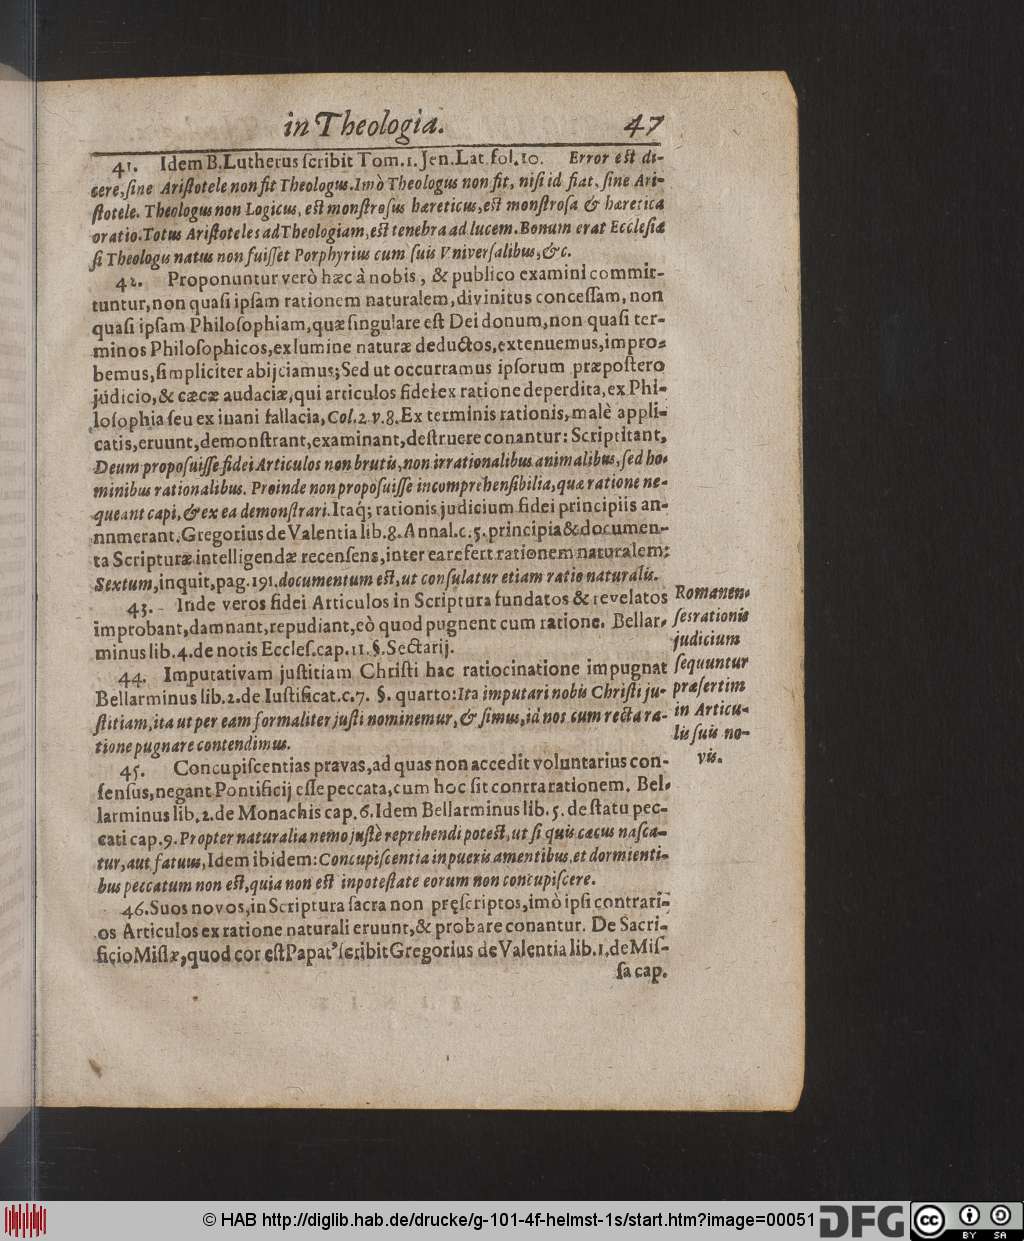 in Theologia. 47
41. Idem B. Lutherus ſcribit Tom. 1. Jen. Lat. fol. 10. Error eſt di-
cere, ſine Ariſtotele non fit Theologus. Imò Theologus non fit, niſi id fiat, ſine Ari-
ſtotele. Theologus non Logicus, eſt monſtroſus hæreticus, eſt monſtroſa & hæretica
oratio. Totus Ariſtoteles ad Theologiam, eſt tenebra ad lucem. Bonum erat Eccleſiæ
ſi Theologis natus non fuiſſet Porphyrius cum ſuis Vniverſalibus, &c.
42. Proponuntur verò hæc à nobis, & publico examini commit-
tuntur, non quaſi ipſam rationem naturalem, divinitus conceſſam, non
quaſi ipſam Philoſophiam, quæ ſingulare eſt Dei donum, non quaſi ter-
minos Philoſophicos, ex lumine naturæ deductos, extenuemus, impro-
bemus, ſimpliciter abijciamus; Sed ut occurramus ipſorum præpoſtero
judicio, & cæcæ audaciæ, qui articulos fidei ex ratione deperdita, ex Phi-
loſophia ſeu ex inani fallacia, Col. 2. v. 8. Ex terminis rationis, malè appli-
catis, eruunt, demonſtrant, examinant, deſtruere conantur: Scriptitant,
Deum propoſuiſſe fidei Articulos non brutis, non irrationalibus animalibus, ſed ho-
minibus rationalibus. Proinde non propoſuiſſe incomprehenſibilia, quæ ratione ne-
queant capi, & ex ea demonſtrari. Itaq; rationis judicium fidei principiis an-
nnmerant. Gregorius de Valentia lib. 8. Annal. c. 5. principia & documen-
ta Scripturæ intelligendæ recenſens, inter ea refert rationem naturalem:
Sextum, inquit, pag. 191. documentum eſt, ut conſulatur etiam ratio naturalis.
43. Inde veros fidei Articulos in Scriptura fundatos & revelatos
improbant, damnant, repudiant, eò quod pugnent cum ratione. Bellar-
minus lib. 4. de notis Eccleſ. cap. 11. §. Sectarij.
Romanen-
ſes rationis
judicium
ſequuntur
præſertim
in Articu-
lis ſuis no-
vis.
44. Imputativam juſtitiam Chriſti hac ratiocinatione impugnat
Bellarminus lib. 2. de Iuſtificat. c. 7. §. quarto: Ita imputari nobis Chriſti ju-
ſtitiam, ita ut per eam formaliter juſti nominemur, & ſimus, id nos cum recta ra-
tione pugnare contendimus.
45. Concupiſcentias pravas, ad quas non accedit voluntarius con-
ſenſus, negant Pontificij eſſe peccata, cum hoc ſit contra rationem. Bel-
larminus lib. 2. de Monachis cap. 6. Idem Bellarminus lib. 5. de ſtatu pec-
cati cap. 9. Propter naturalia nemo juſtè reprehendi poteſt, ut ſi quis cæcus naſca-
tur, aut fatuus, Idem ibidem: Concupiſcentia in pueris amentibus, et dormienti-
bus peccatum non eſt, quia non eſt in poteſtate eorum non concupiſcere.
46. Suos novos, in Scriptura ſacra non pręſcriptos, imò ipſi contrari-
os Articulos ex ratione naturali eruunt, & probare conantur. De Sacri-
ficio Miſſæ, quod cor eſt Papatꝰ ſcribit Gregorius de Valentia lib. 1. de Miſ-
ſa cap.
© HAB http://diglib.hab.de/drucke/g-101-4f-helmst-1s/start.htm?image=00051 DFG cc BY SA